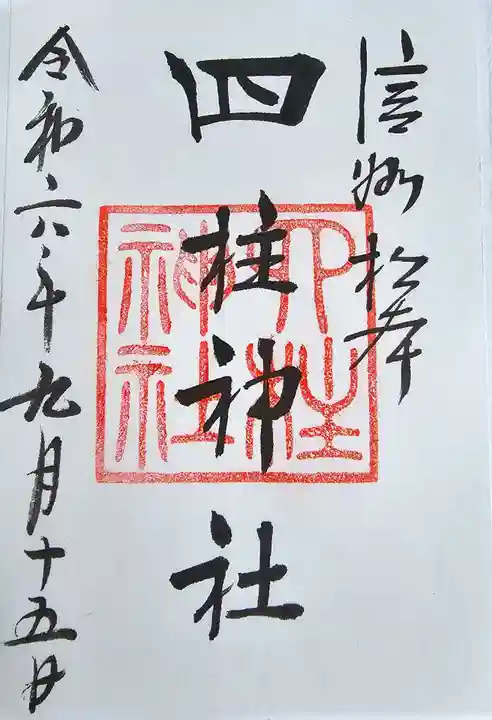 信州松本
四柱神社
四柱
神社
令和六年九月十五日